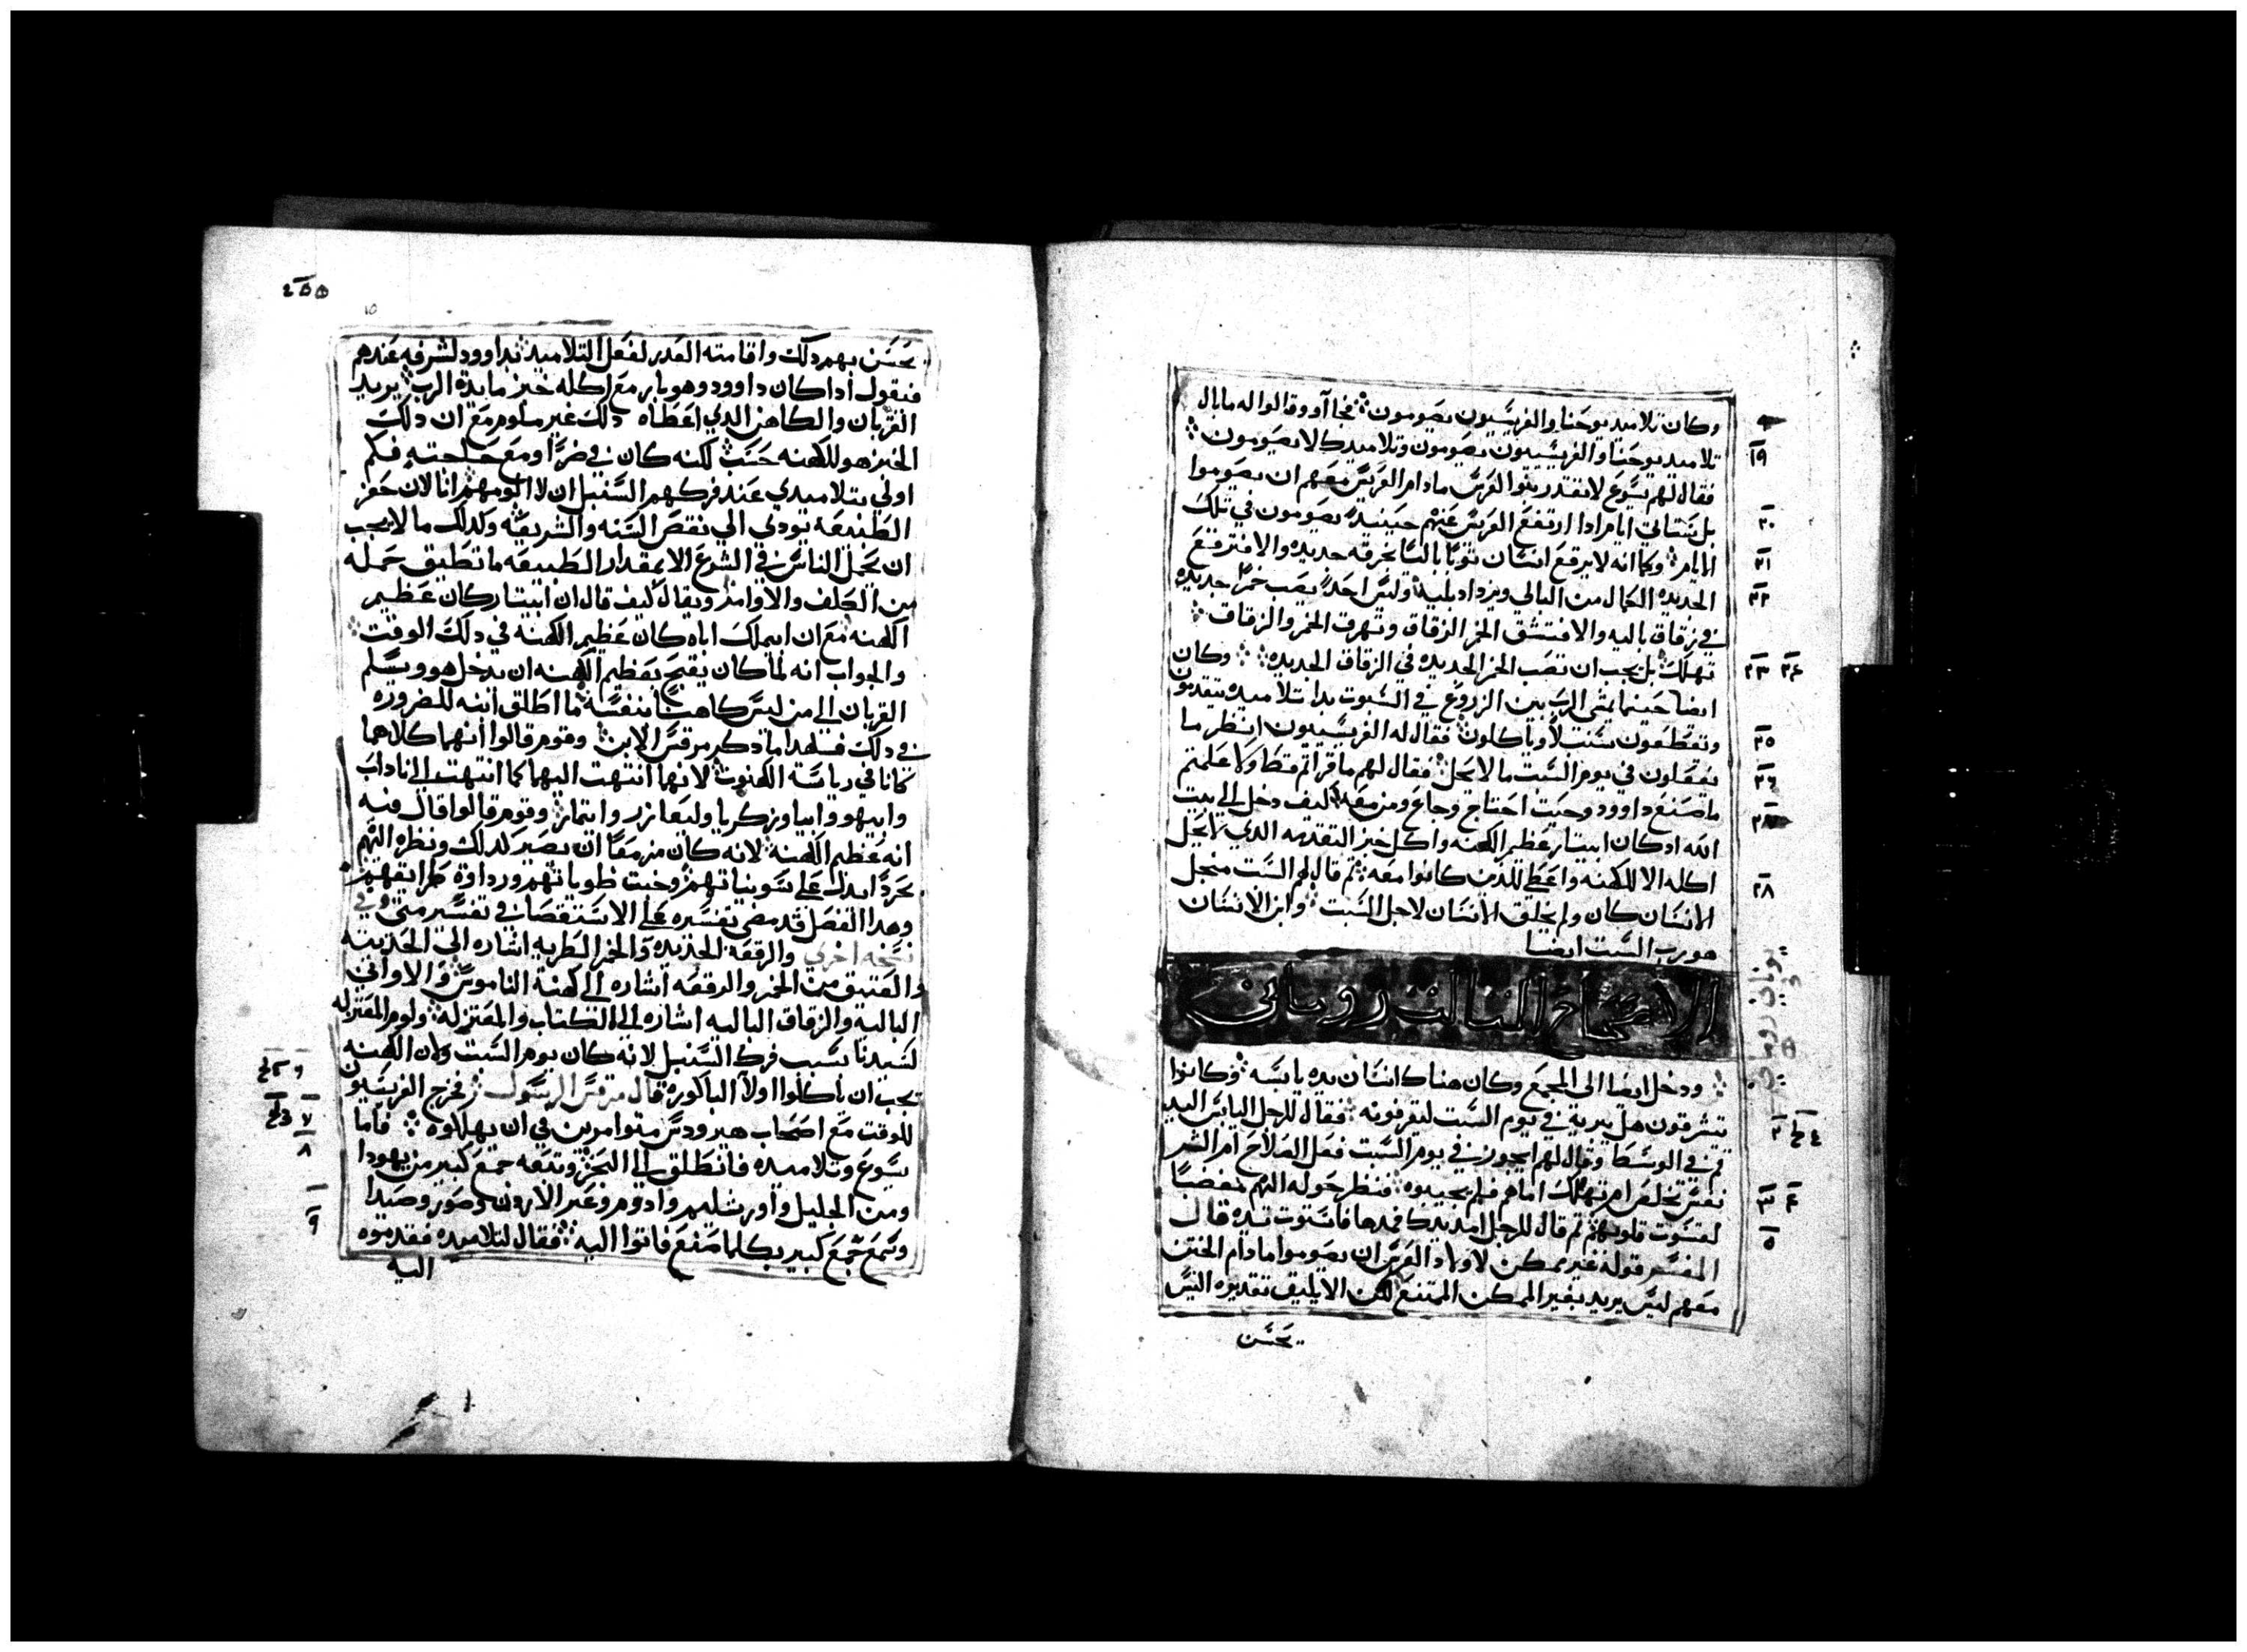 وكان تلاميد يوحنا والفريسيون يصومون فجاآو وقالوا له ما بال
تلاميد يوحنا والفريسيون يصومون وتلاميدك لا يصومون
١٩
فقال لهم يسوع لا تقتدر بنوا العرس ما دام العريس معهم ان يصوموا
بل ستاتي ايام ادا ارتفع العريس عنهم حينيد يصومون في تلك
٢٠
الايام وكما انه لا يرقع انسان توبا باليا بخرقه جديده والا فترفع
٢١
الجديده الكمال من البالي ويزداد بليه وليس احد يصب خمر جديده
٢٢
في زقاق باليه والا فتنشق الخمر الزقاق وتهرق الخمر والزقاق
تهلك بل يجب ان تصب الخمر الجديده في الزقاق الجديده وكان
٢٣ ٢٤
ايضا حينما يمشي الرب بين الزروع في السبوت بدا تلاميده يتقدمون
ويقطعون سنبلا وياكلون فقال له الفريسيون انظر ما
٢٥
يفعلون في يوم السبت ما لا يحل فقال لهم ما قراتم قط ولا علمتم
٢٦
ما صنع داوود حيت احتاج وجاع ومن معه كيف دخل الي بيت
الله اد كان ابيتار عظيم الكهنه واكل خبز التقدمه الدي لا يحل
اكله الا للكهنه واعطي للدين كانوا معه تم قال لهم السبت منجل
٢٨
الانسان كان ولم يخلق الانسان لاجل السبت وابن الانسان
هو رب السبت ايضا
الاصحاح التالت روماني
ودخل ايضا الي المجمع وكان هناك انسان يده يابسه وكانوا
يتشرفون هل يبريه في يوم السبت ليقرفونه فقال للرجل اليابس اليد
٢
قم في الوسط وقال لهم ايجوز في يوم السبت فعل الصلاح ام الشر
نفس تخلص ام تهلك اما هم فلم يجيبوه فنظر حوله اليهم بغضبا
٣ ٤
لقسوت قلوبهم تم قال للرجل امد يدك فمدها فاستوت يده قال
٥
المفسر قوله غير ممكن لاولاد العرس ان يصوموا ما دام الختن
معهم ليس يريد بغير الممكن الممتنع لكن الا يليق تقديره اليس
يحسن
٢٥٥
يحسن بهم دلك واقامته العدر لفعل التلاميد بداوود لشرفه عندهم
فنقول ادا كان داوود وهو بار مع اكله خبز مايدة الرب يريد
القربان والكاهن الدي اعطاه دلك غير ملوم مع ان دلك
الخبز هو للكهنه حسب لكنه كان في ضر او مع حاجته فكم
اولي بتلاميدي عند فركهم السنبل ان لا الومهم انا لان حفز
الطبيعه تودي الي نقص السنه والشريعه ولدلك ما لا يجب
ان تحمل الناس في الشرع الا بمقدار الطبيعه ما تطيق حمله
من الكلف والاوامر ويقال كيف قال ان ابيتار كان عظيم
الكهنه مع ان ابيملك اباه كان عظيم الكهنه في دلك الوقت
والجواب انه لما كان يقبح بعظيم الكهنه ان يدخل هو ويسلم
القربان الي من ليس كاهنا بنفسه ما اطلق ابنه للضروره
في دلك فلهدا ما دكر مرقس الابن وقوم قالوا انهما كلاهما
كانا في رياسة الكهنوت لانها انتهت اليهما كما انتهت الي ناداب
وابيهو وابيا وزكريا وليعازر وايتمار وقوم قالوا قال فيه
انه عظيم الكهنه لانه كان مزمعا ان يصير كدلك ونظره اليهم
بحردا يدل علي سو نياتهم وخبت طوياتهم ورداوة طرايقهم
وهدا الفصل قد مضي تفسيره علي الاستقصا في تفسير متي وفي
نسخه اخري والرقعه الجديده والخمر الطريه اشاره الي الحديته
والعتيق من الخمر والرقعه اشاره الي كهنة الناموس والاواني
الباليه والزقاق الباليه اشاره الي الكتاب والمعتزله ولوم المعتزله
لسيدنا بسبب فرك السنبل لانه كان يوم السبت ولان الكهنه
يجب ان ياكلوا اولا الباكوره قال مرقس الرسول فخرج الفريسيون
٦
للوقت مع اصحاب هيرودس متوامرين في ان يهلكوه فاما
٧
يسوع وتلاميده فانطلق الي البحر وتبعه جمع كبير من يهودا
٨
ومن الجليل واورشليم وادوم وعبر الاردن وصور وصيدا
وسمع جمع كبير بكلما صنع فاتوا اليه فقال لتلاميده فقدموه
٩
اليه